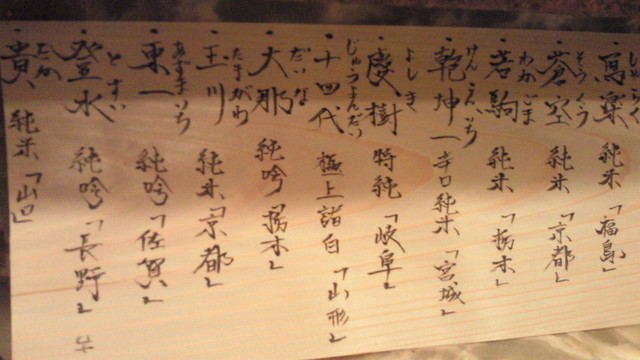 しゃらく
・寫楽 純米「福島」
そうくう
・蒼空 純米「京都」
わかごま
・若駒 純米「栃木」
けんこんいち
・乾坤一 辛口純米「宮城」
よしき
・慶樹 特純「岐阜」
じゅうよんだい
・十四代 極上諸白「山形」
だいな
・大那 純吟「栃木」
たまがわ
・玉川 純米「京都」
あずまいち
・東一 純吟「佐賀」
とすい
・登水 純吟「長野」
たか
・貴 純米「山口」